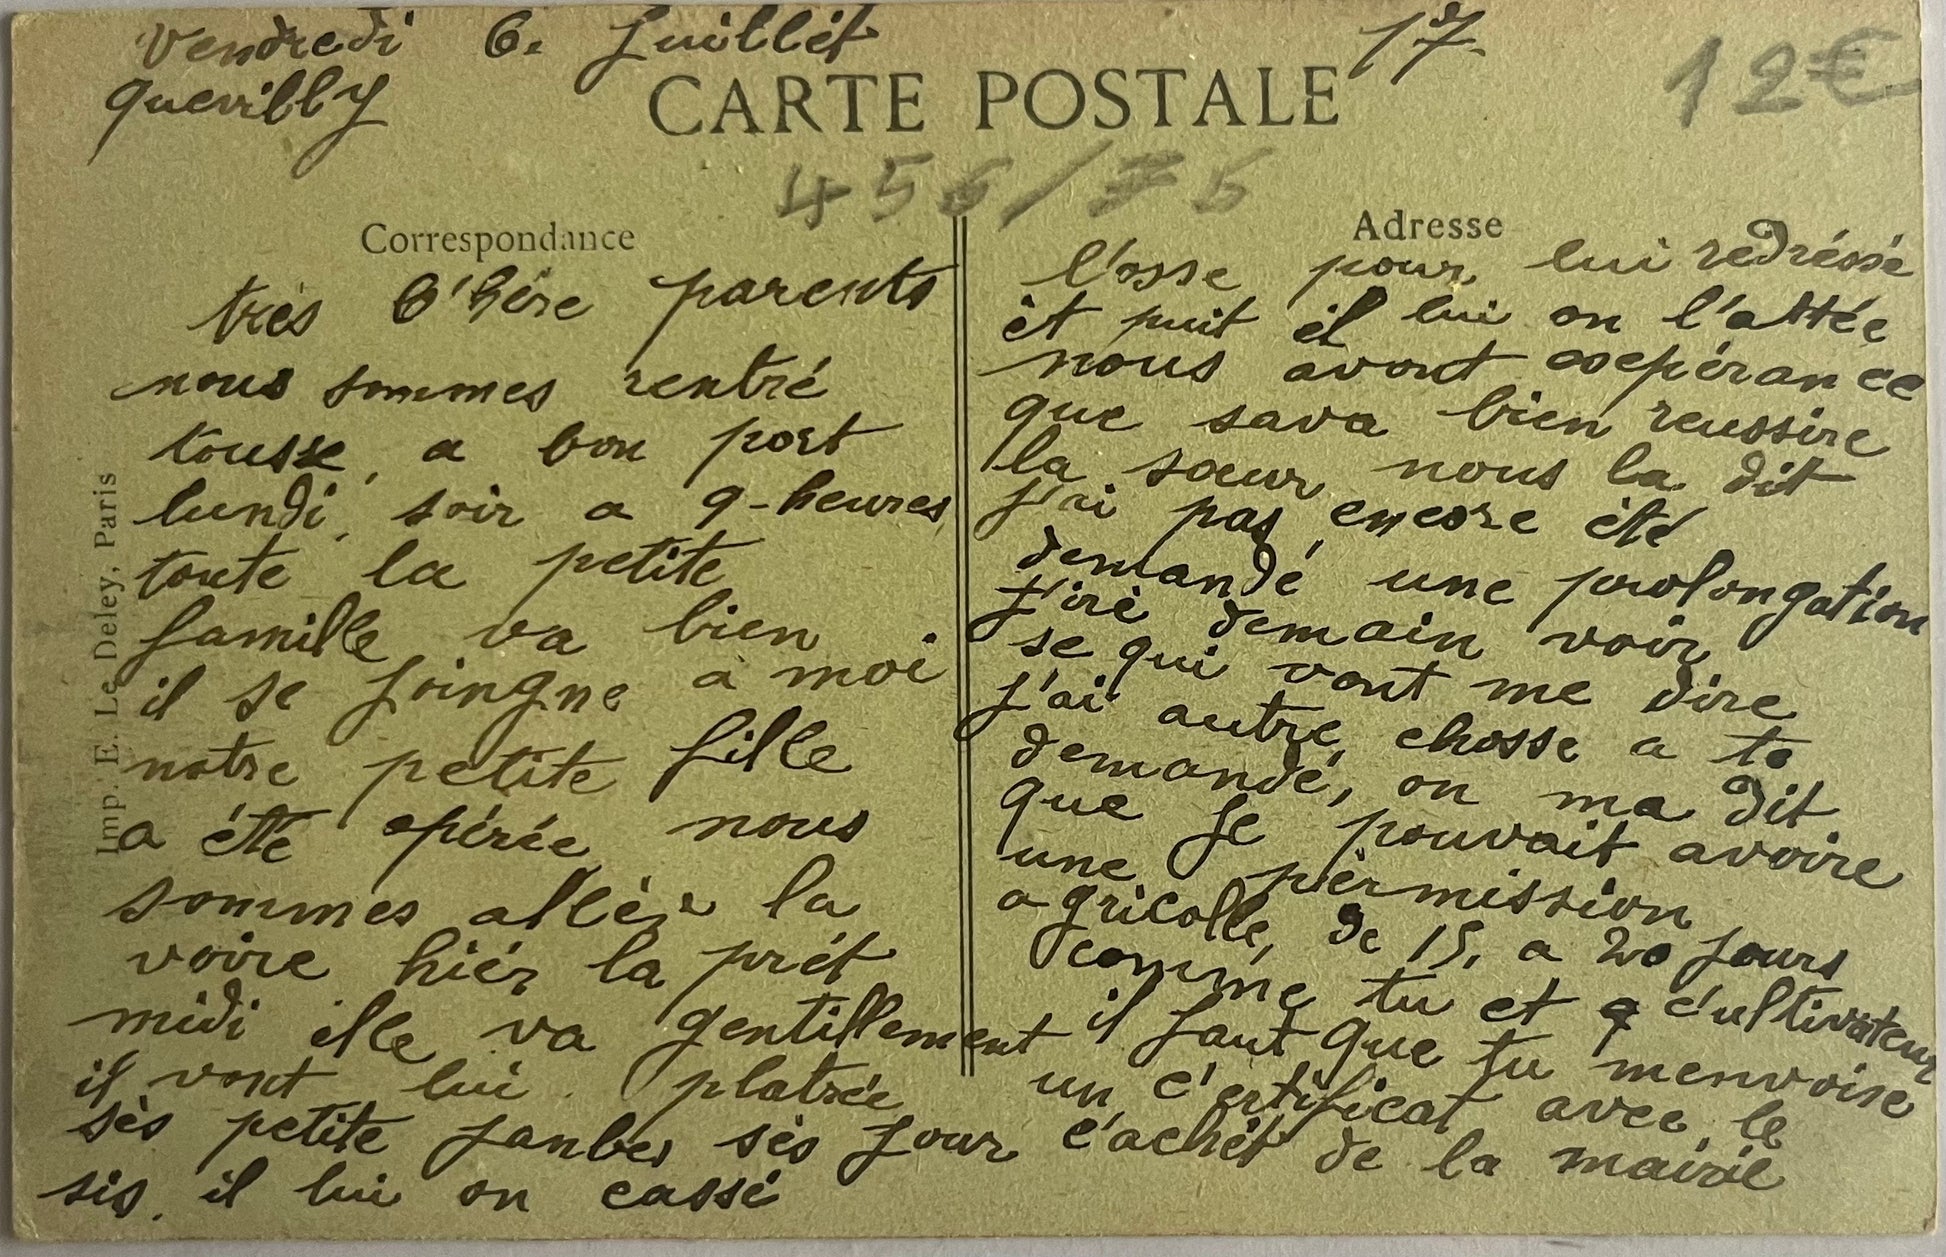 Vendredi 6. Juillet 17.
quevilly
12€
CARTE POSTALE
456/76
Correspondance
très C'hére parents
nous sommes rentré
tousse, a bon port
lundi, soir a 9-heures,
toute la petite
famille va bien
il se joingne à moi
notre petite fille
a été opérée, nous
sommes allée la
voire hiér la prét
midi elle va gentillement
il vont lui platrée
sès petite janbes sès jour
sis. il lui on cassé
Imp. E. Le Deley, Paris
Adresse
l'osse pour lui redréssé
èt puit il lui on l'attée
nous avont esepérance
que sava bien reussire
la sœur nous la dit
j'ai pas encore été
demandé une prolongation
j'iré demain voir
se qui vont me dire
j'ai autre chosse a te
demandé, on ma dit
que je pouvait avoire
une pérmission
agricolle, de 15. a 20 jours
comme tu et c'ultivateur
il faut que tu menvoise
un c'ertificat avec le
c'achét de la mairie